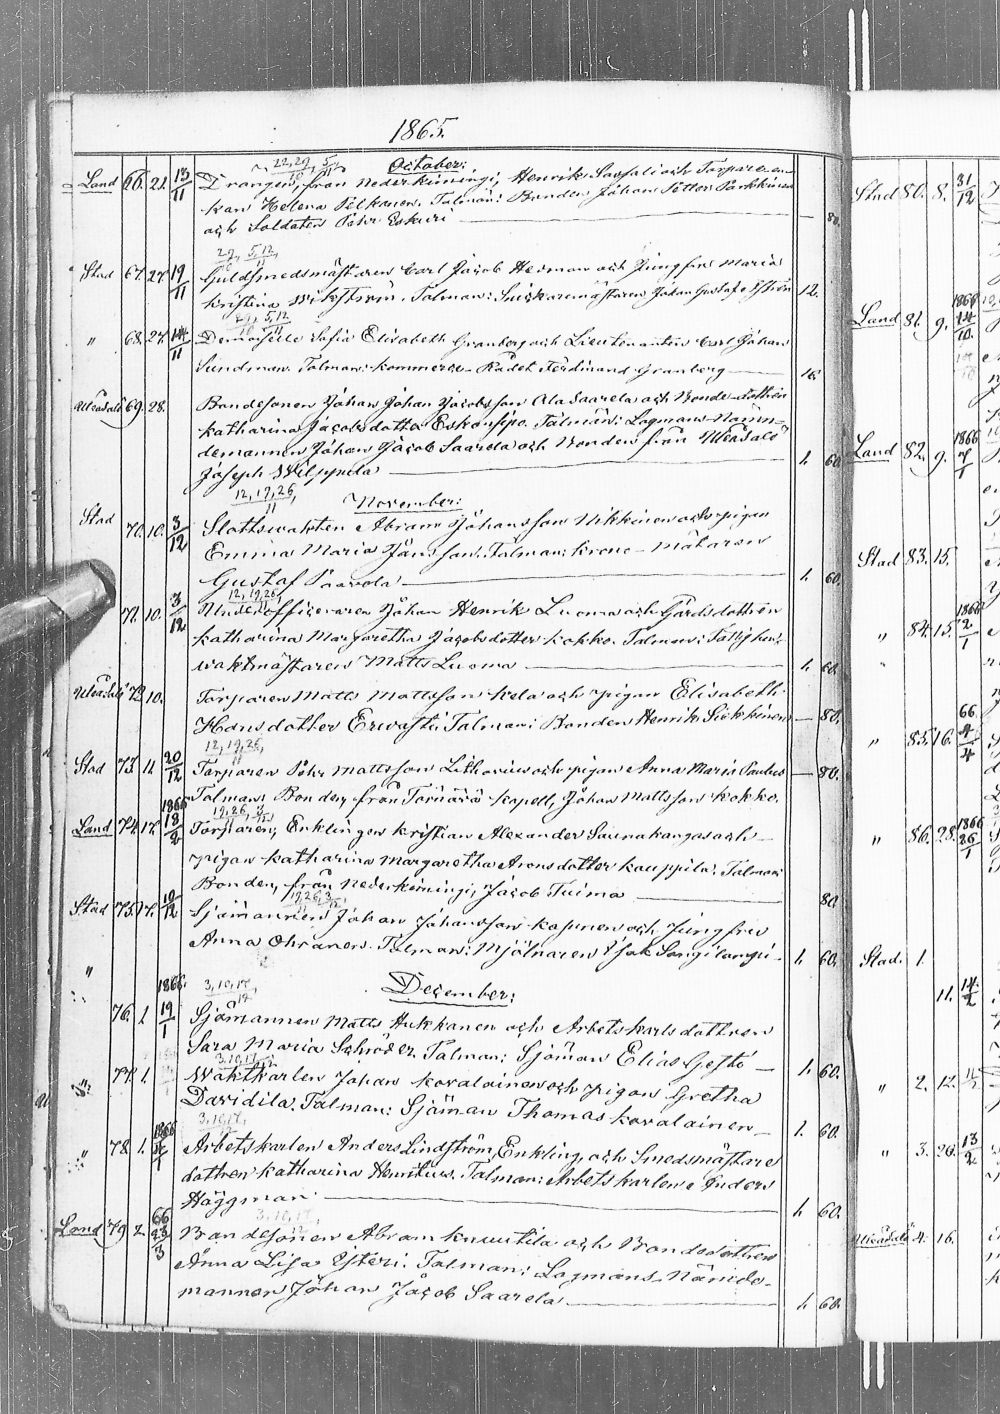 1865.
October:
22,29, 5,
10 11
Land 66. 21. 13/11 Drängen, från Nederkiminge, Henrik och Torpareen-
kan Helena Pelkonen. Talman: Bonden Johan Petter Parkkinen
och Soldaten Pehr Eskuri — 80.
29, 5,12,
10 11
Stad 67. 27. 19/11 Guldsmedsmästaren Carl Jacob Herman och Jungfru Maria
Kristina Wikström. Talman: Snickaremästaren Johan Gustaf 12.
29, 5,12
10 11
" 68. 27. 14/11 Demoiselle Sofia Elisabeth Granberg och Lieutenanten Carl Johan
Sundman. Talman: Kommerce-Rådet Ferdinand Granberg
69. 28. Bondesonen Johan Johan Jacobsson Ala Saarela och Bonde-dottren
Katharina Jacobsdotter. Talman: Lagmans-Näm-
demannen Johan Jacob Saarela och Bonden från
Joseph Wilppola 1. 60.
12,19,26,
11
November:
Stad 70. 10. 3/12 Slottswakten Abram Johansson Nikkinen och pigan
Emma Maria Jansson. Talman: Krono-mätaren
Gustaf Paavola 1. 60.
12,19,26,
71. 10. 3/12 Underofficeraren Johan Henrik Luoma och Gårdsdottren
Katharina Margaretha Jacobsdotter Kokko. Talman: Fattighus-
waktmästaren Matts Luoma 1. 60.
72. 10. Torparen Matts Mattsson Kela och pigan Elisabeth
Hansdotter Erwasti. Talman: Bonden Henrik — 80.
12,19,26,
11
Stad 73. 11. 20/12 Torparen Pehr Mattsson Lithovius och pigan Anna Maria Paulus — 80.
Talman: Bonden, från kapell, Johan Mattsson Kokko.
1866
19,26, 3
Land 74. 17. 18/2 Torparen, Enklingen Kristian Alexander Saunakangas och
pigan Katharina Margaretha Aronsdotter Kauppila. Talman:
Bonden, från Nederkiminge, Jacob Tuima 80.
19,26,3
Stad 75. 17. 10/12 Sjömannen Johan Johansson Kapunen och Jungfru
Anna Ohranen. Talman: Mjölnaren Isak Sangilampi 1. 60.
"
3,10,17,
12
December:
1866.
76. 1. 19/1 Sjömannen Matts Hukkanen och Arbetskarlsdottren
Sara Maria Schröder. Talman: Sjöman Elias 1. 60.
3,10,17,
" 77. 1. Waktkarlen Johan Kovalainen och pigan Gretha
Davidila. Talman: Sjöman Thomas Kovalainen 1. 60.
3,10,17,
12
1866
" 78. 1. Arbetskarlen Anders Lindström, Enkling, och Smedsmästare
dottren Katharina Henrilius. Talman: Arbetskarlen Anders
Häggman 1. 60.
3,10,17,
12
66
Land 79 2. 23/3 Bondesonen Abram Knuutila och Bondedottren
Anna Lisa. Talman: Lagmans-Nämde-
mannen Johan Jacob Saarela 1. 60.
Stad 80. 8. 31/12
1866
Land 81. 9. 14/10
1866
Land 82. 9. 7/1
Stad 83. 15.
1866
" 84. 15. 2/1
"
66
" 85. 16. 4/4
1866
" 86. 28. 26/1
Stad. 1.
11. 14/2
" 2. 12.
" 3. 20. 13/2
4. 16.